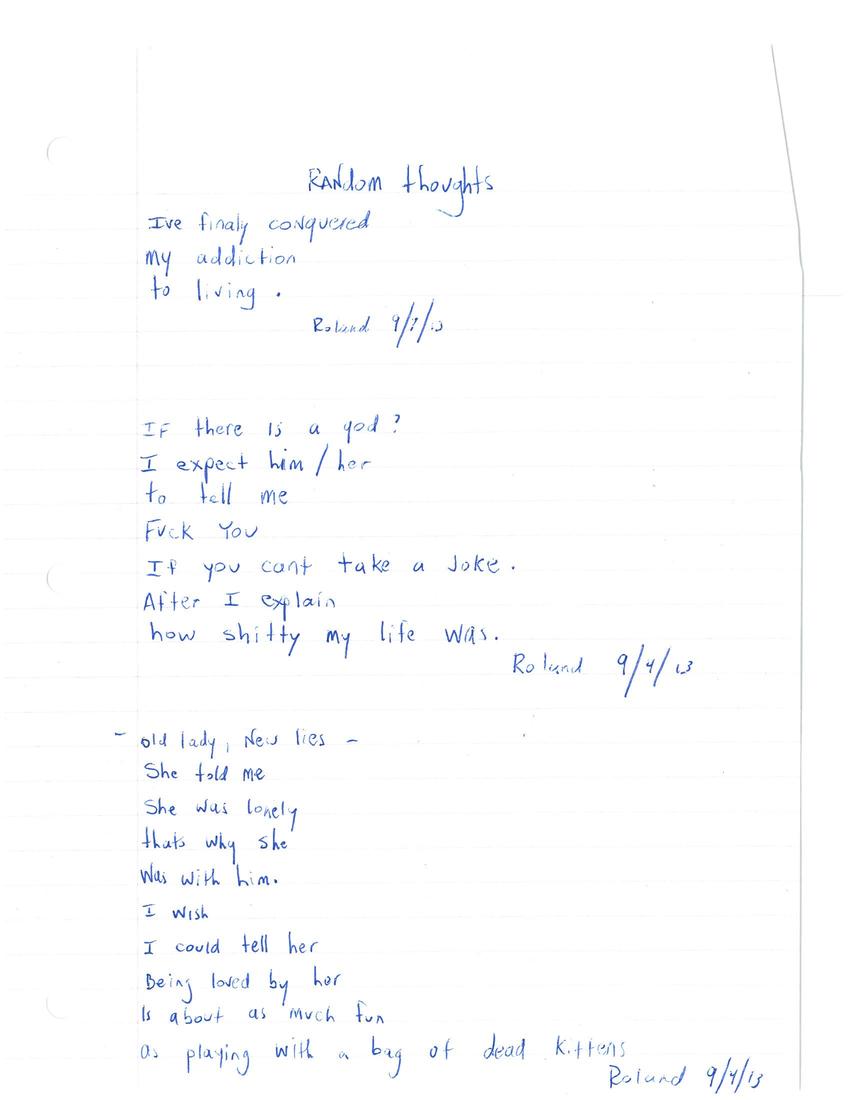 RANdom thoughts
Ive finaly conquered
my addiction
to living .
Roland 9/7/13
IF there is a god ?
I expect him / her
to tell me
Fuck You
If you cant take a Joke .
After I explain
how shitty my life was.
Roland 9/4/13
- old lady, New lies -
She told me
She was lonely
thats why she
Was with him.
I wish
I could tell her
Being loved by her
Is about as much fun
as playing with a bag of dead kittens
Roland 9/4/13